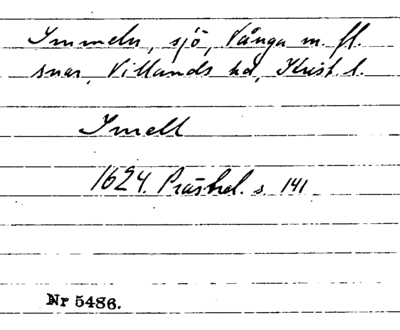 Immeln, sjö, Vånga m. fl.
snar, Villands hd, Krist. l.
Imell
1624. Prästrel. s. 141
Nr 5486.